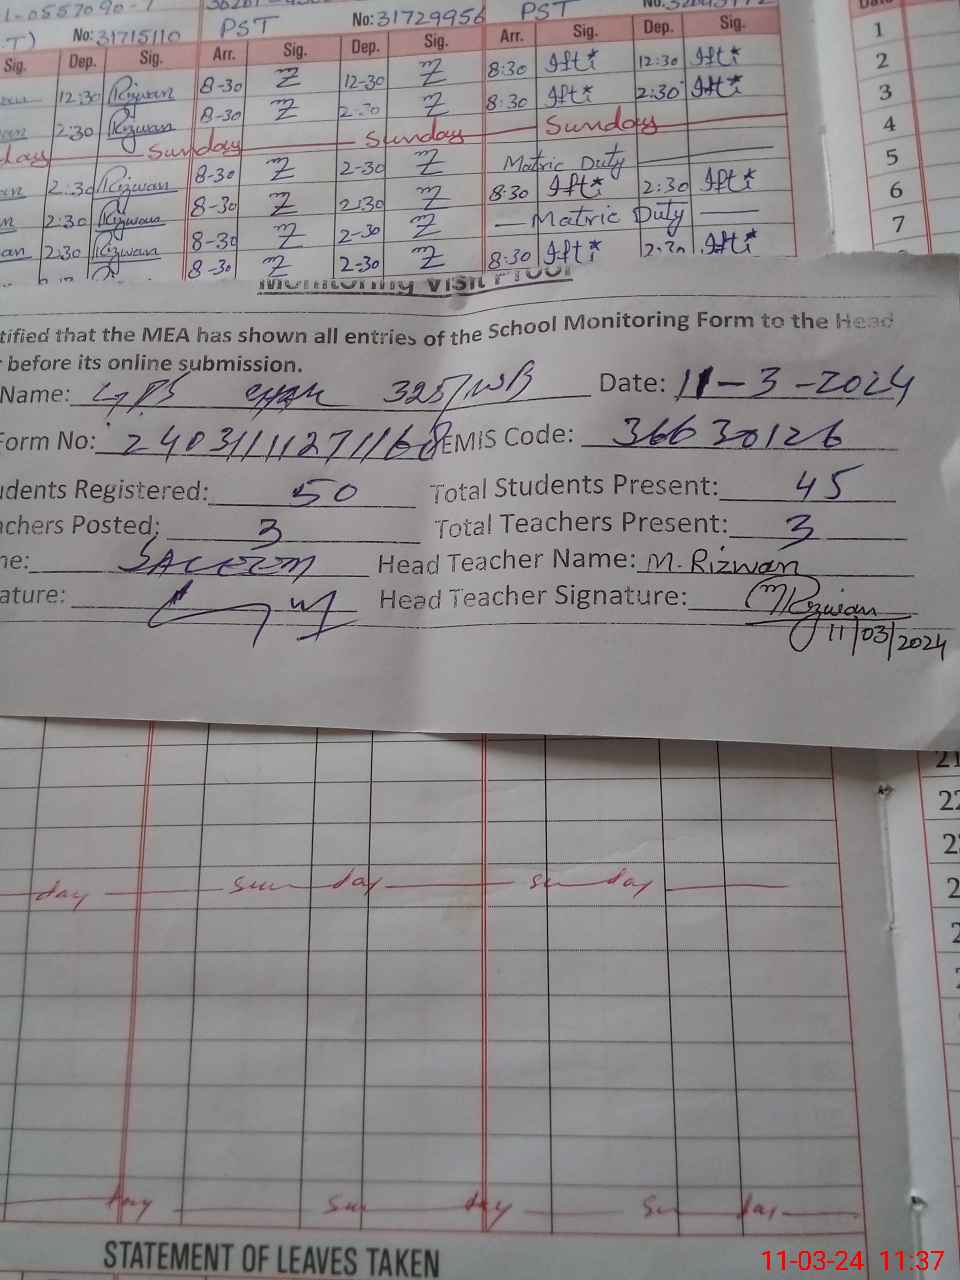 1-0557090-7
T) No: 31715110 PST No: 31729956 PST
Sig. Dep. Sig. Arr. Sig. Dep. Sig. Arr. Sig. Dep. Sig.
12:30 Rizwan 8-30 12-30 8:30 Ifti* 12:30 Ifti* 2
2:30 Rizwan 8-30 2:30 8:30 Ifti* 2:30 Ifti* 3
day Sunday Sunday Sunday 4
2:30 Rizwan 8-30 2-30 Matric Duty 5
2:30 Rizwan 8-30 2:30 8:30 Ifti* 2:30 Ifti* 6
an 2:30 Rizwan 8-30 2-30 Matric Duty 7
8-30 2-30 8:30 Ifti* 2:30 Ifti*
Monitoring Visit Proof
tified that the MEA has shown all entries of the School Monitoring Form to the Head
before its online submission.
Name: GPS Chak 325/WB Date: 11-3-2024
Form No: EMIS Code: 36630126
udents Registered: 50 Total Students Present: 45
achers Posted: 3 Total Teachers Present: 3
me: SALEEM Head Teacher Name: M. Rizwan
ature: Head Teacher Signature: M Rizwan
11/03/2024
21
22
day Sunday Sunday
day Sunday Sunday
STATEMENT OF LEAVES TAKEN
11-03-24 11:37